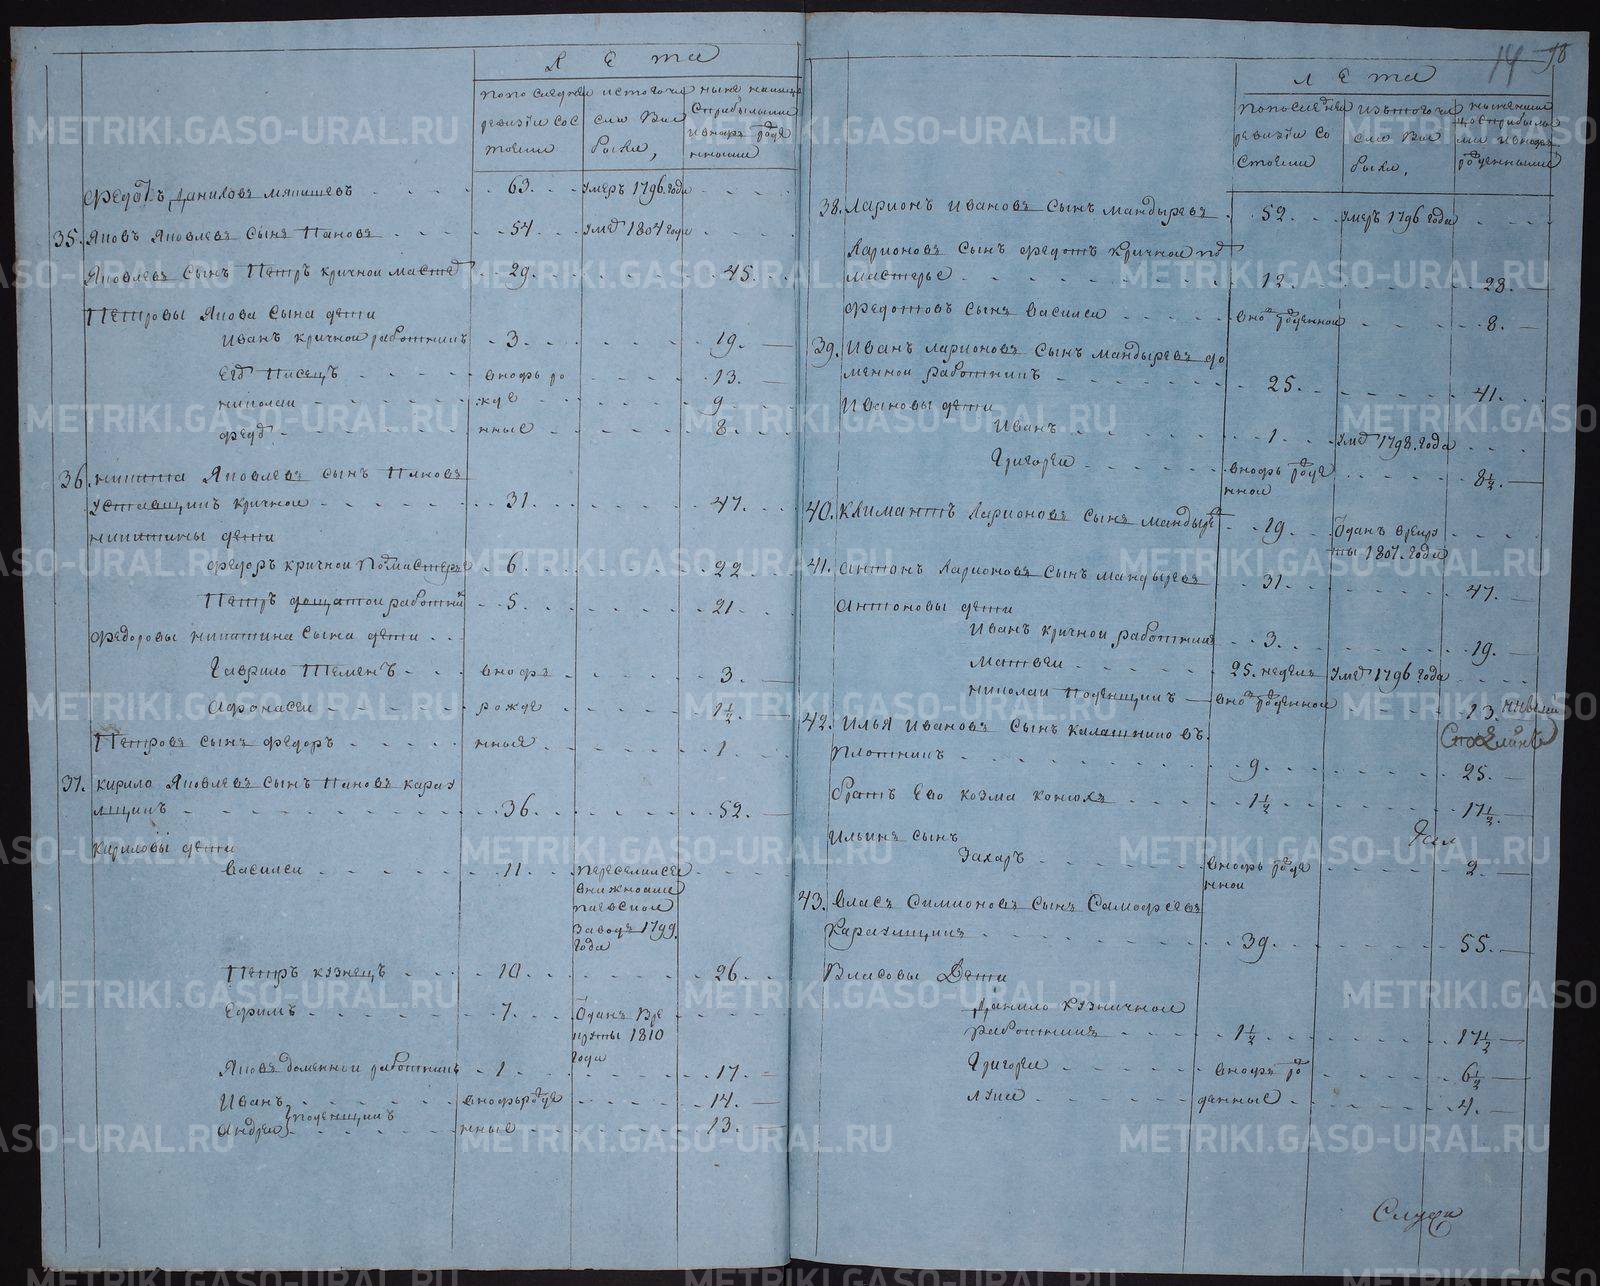 Лета
по последней ревизiи состояли
ис того числа выбыло,
ныне на лицо с прибылыми и вновь рожденными
Федотъ Даниловъ Мяпишевъ 63. умеръ 1796 года
35. Яковъ Яковлевъ сынъ Пановъ 54 умеръ 1804 года
Яковлевъ сынъ Петръ кричной мастеръ 29. 45.
Петровы Якова сына дети
Иванъ кричной работникъ 3. 19.
Егоръ писецъ вновь ро 13.
Николаи жде 9
Федоръ нные 8.
36. Никита Яковлевъ сынъ Пановъ
уставщикъ кричной 31. 47.
Никитины дети
Федоръ кричной подмастерье 6. 22
Петръ дощатой работникъ 5. 21
Федоровы Никитина сына дети
Гаврило вновь 3.
Афонасеи рожде 1½
Петровъ сынъ Федоръ нные 1
37. Кирило Яковлевъ сынъ Пановъ карау
лщикъ 36. 52.
Кириловы дети
Василеи 11. переселился
в нижно
заводъ 1799.
года
Петръ кузнецъ 10. 26.
Ефимъ 7. отданъ в ре
круты 1810
года
Яковъ доменнои работникъ 1. 17.
Иванъ вновь рожде 14.
поденщикъ
Андреи нные 13.
14 18
Лета
по последней ревизiи состояли
изъ того числа выбыло,
ныне на лицо с прибылыми и вновь рожденными
38. Ларионъ Ивановъ сынъ Мандыревъ 52. умеръ 1796 года
Ларионовъ сынъ Федотъ кричной под
мастерье 12. 28.
Федотовъ сынъ Василеи вновь рожденнои 8.
39. Иванъ Ларионовъ сынъ Мандыревъ до
менной работникъ 25. 41.
Ивановы дети
Иванъ 1. умеръ 1798. года
Григореи вновь рожде
нной 8½.
40. Климантъ Ларионовъ сынъ Мандыревъ 19. отданъ в рекру
ты 1807. года
41. Антонъ Ларионовъ сынъ Мандыревъ 31. 47.
Антоновы дети
Иванъ кричной работникъ 3. 19.
Матвеи 25. недель умеръ 1796 года
Николаи поденщикъ вновь рожденнои 13.
42. Илья Ивановъ сынъ Калашниковъ.
плотникъ 9. 25.
братъ Его Козма конюхъ 1½ 17½.
Ильинъ сынъ
Захаръ вновь рожде
нной 2.
43. Власъ Симионовъ сынъ Самофеевъ
караулщикъ 39. 55.
Власовы Дети
Данило кузничной
работникъ 1½. 17½
Григореи вновь ро 6½
Лука жденные 4.